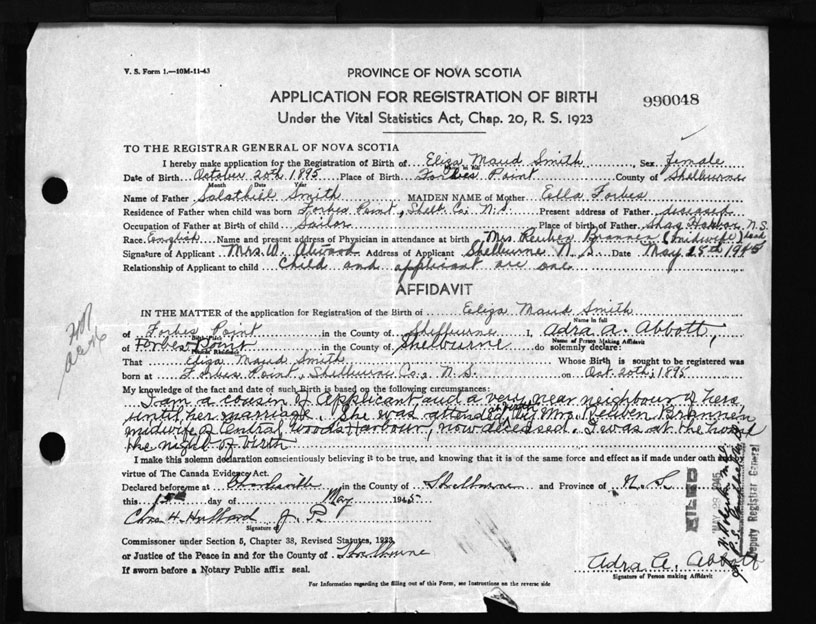 V. S. Form 1.—10M-11-43
PROVINCE OF NOVA SCOTIA
APPLICATION FOR REGISTRATION OF BIRTH
990048
Under the Vital Statistics Act, Chap. 20, R. S. 1923
TO THE REGISTRAR GENERAL OF NOVA SCOTIA
I hereby make application for the Registration of Birth of Eliza Maud Smith, Sex female
Date of Birth October 20th 1895 Place of Birth Forbes Point County of Shelburne
Month Date Year
Name of Father Salathiel Smith MAIDEN NAME of Mother Ella Forbes
Residence of Father when child was born Forbes Point, Shelb Co, N.S. Present address of Father deceased
Occupation of Father at Birth of child Sailor Place of birth of Father Shag Harbor N.S.
Race English Name and present address of Physician in attendance at birth Mrs. Reuben Brannen (midwife) dead
Signature of Applicant Mrs. W. Atwood Address of Applicant Shelburne N. S. Date May 28th 1945
Relationship of Applicant to child Child and applicant are one
AFFIDAVIT
IN THE MATTER of the application for Registration of the Birth of Eliza Maud Smith
Name in full
of Forbes Point in the County of Shelburne I, Adra A. Abbott,
Birth Place Name of Person Making Affidavit
of Forbes Point in the County of Shelburne do solemnly declare:
Present Residence
That Eliza Maud Smith Whose Birth is sought to be registered was
born at Forbes Point, Shelburne Co., N. S. on Oct. 20th, 1895
My knowledge of the fact and date of such Birth is based on the following circumstances:
I am a cousin of Applicant and a very near neighbour of hers
until her marriage. She was attended at birth by Mrs. Reuben Brannen
midwife of Central Woods Harbour, now deceased. I was at the house
the night of birth
I make this solemn declaration conscientiously believing it to be true, and knowing that it is of the same force and effect as if made under oath
virtue of The Canada Evidence Act.
Declared before me at in the County of Shelburne and Province of N. S.
this day of May 1945
J. P.
Signature of
Commissioner under Section 5, Chapter 38, Revised Statutes, 1923
or Justice of the Peace in and for the County of Shelburne
If sworn before a Notary Public affix seal.
Adra A. Abbott
Signature of Person making Affidavit
For Information regarding the filling out of this Form, see Instructions on the reverse side
FILED
Deputy Registrar General